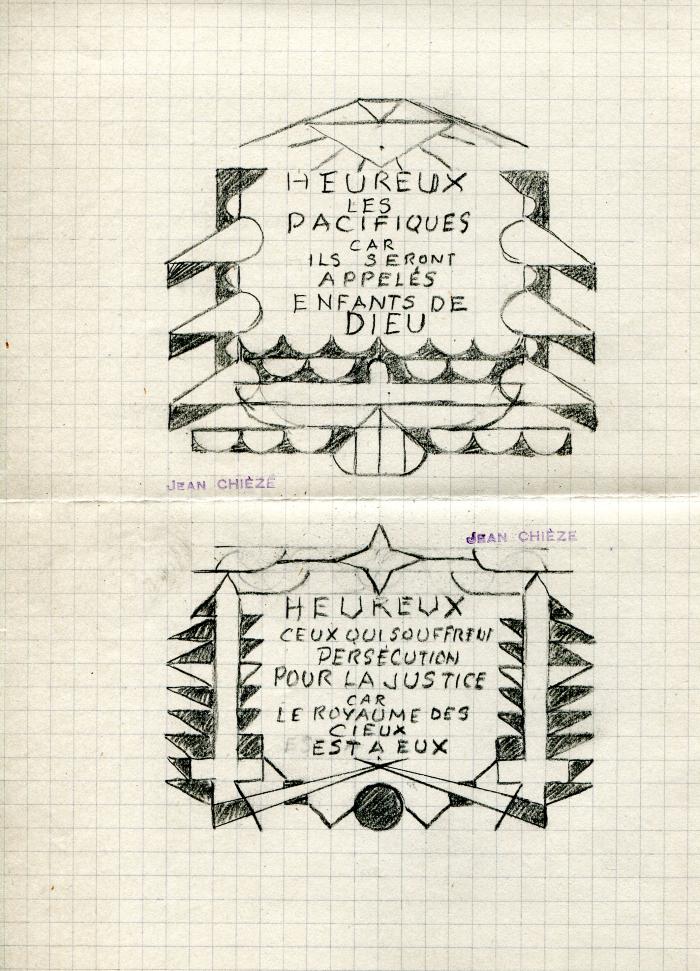 HEUREUX
LES
PACIFIQUES
CAR
ILS SERONT
APPELÉS
ENFANTS DE
DIEU
JEAN CHIÈZE
JEAN CHIÈZE
HEUREUX
CEUX QUI SOUFFRENT
PERSÉCUTION
POUR LA JUSTICE
CAR
LE ROYAUME DES
CIEUX
EST A EUX